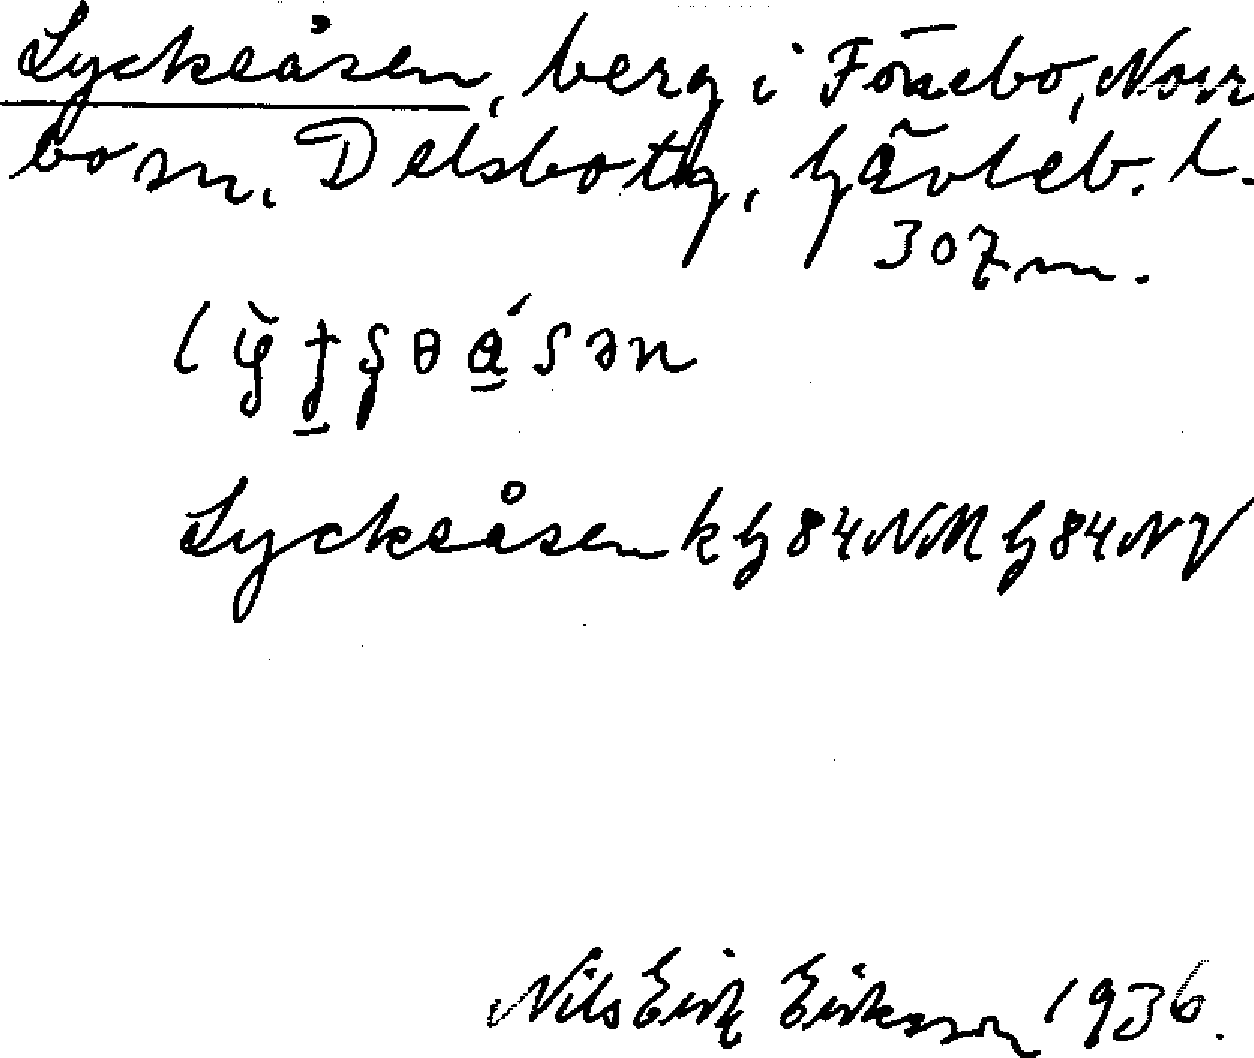 Lyckeåsen, berg i Fönebo, Norr
bo sn. Delsbo tg, Gävleb. l.
307 m.
Lyckeåsen k G 84 NM G 84 NV
Nils Erik Eriksson 1936.